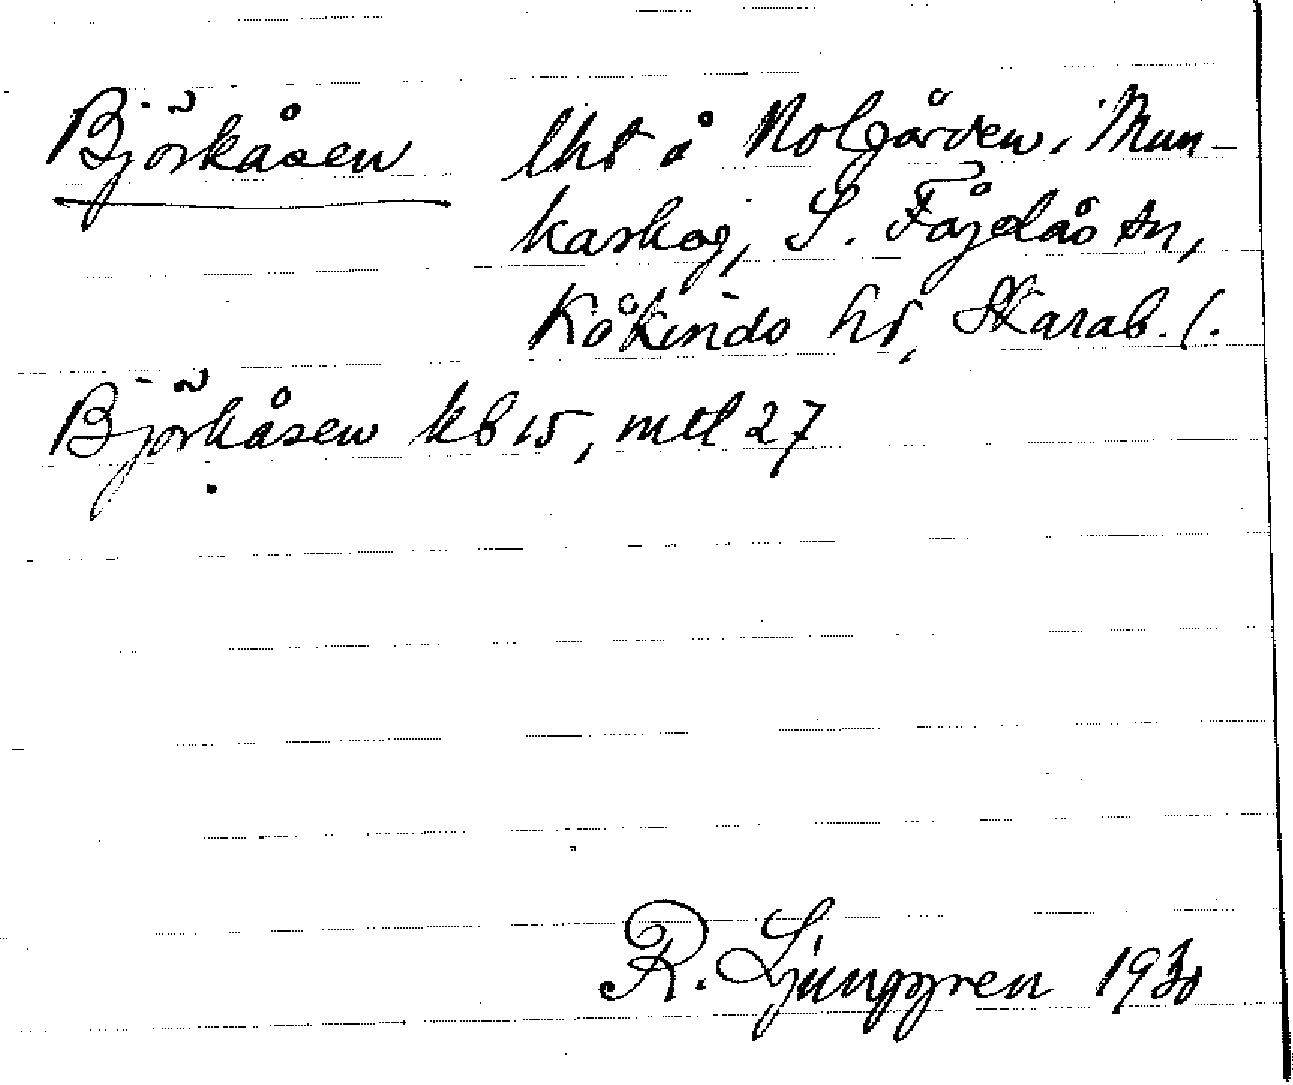 Björkåsen lht å Nolgården i Mun-
karskog, S. Fågelås sn,
Kåkinds hd, Skarab. l.
Björkåsen kb 15, mtl 27
R. Ljunggren 1930